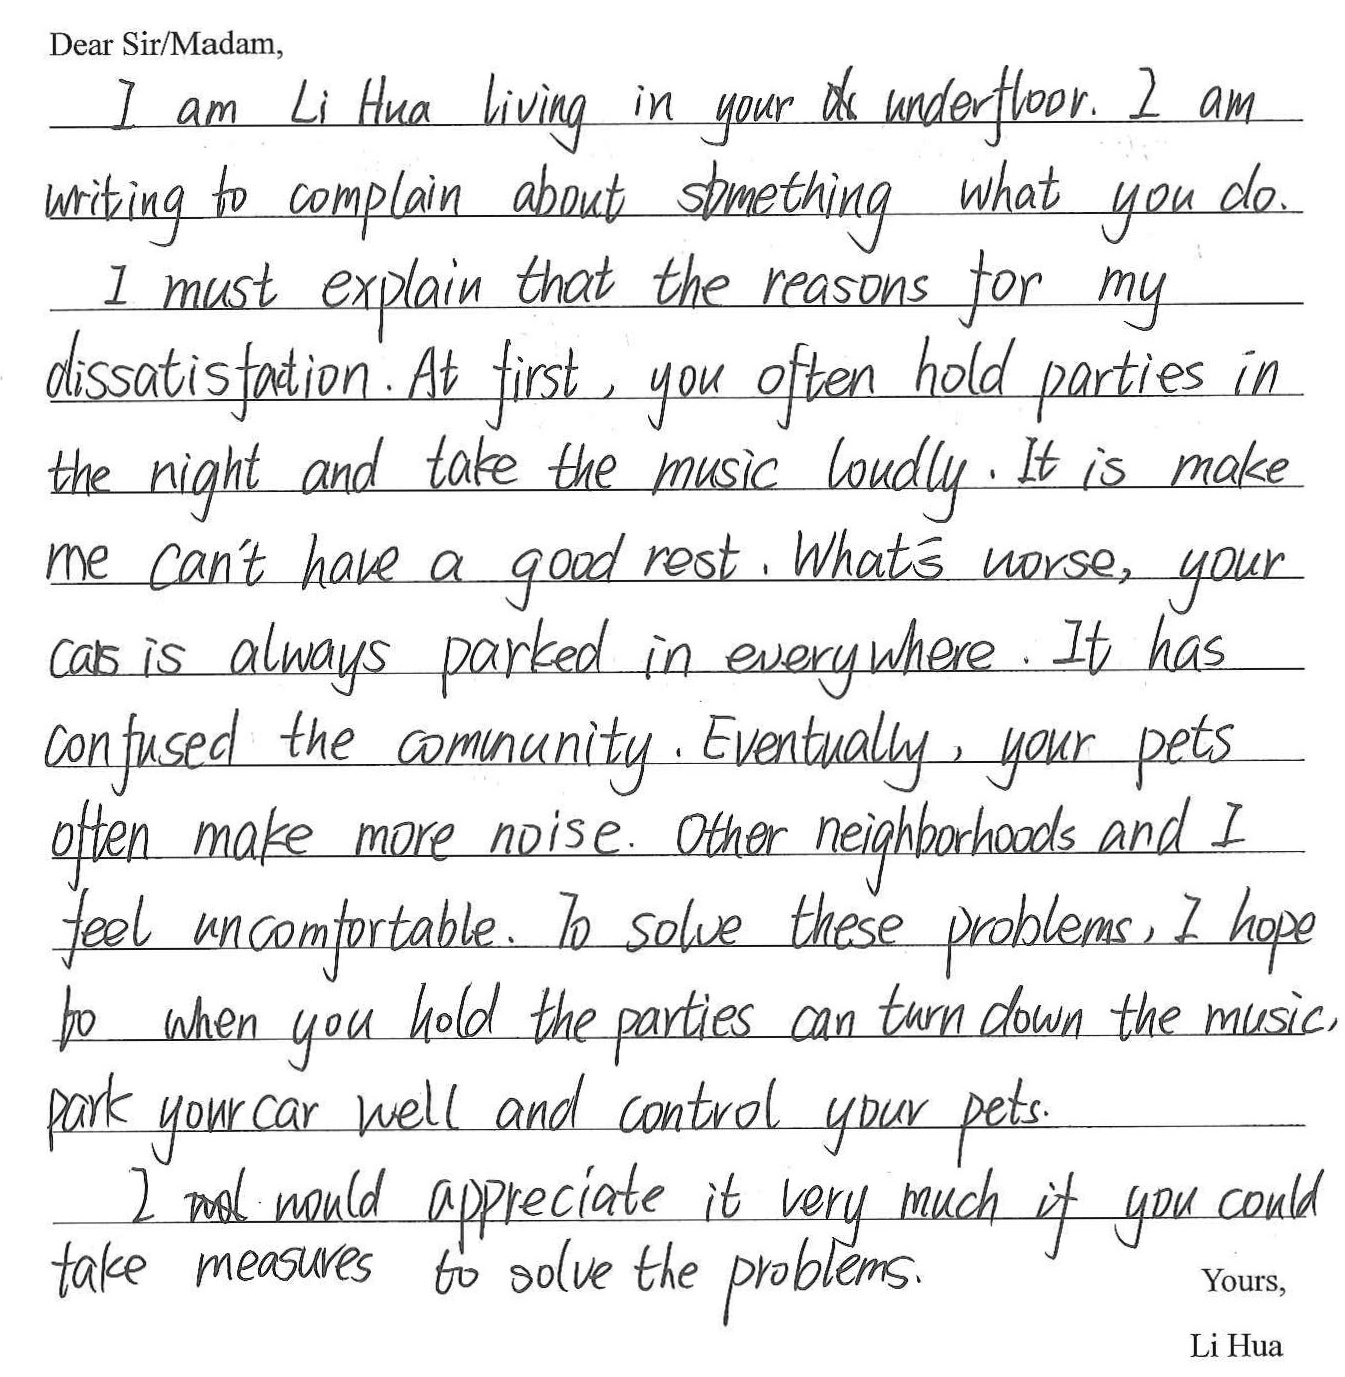 Dear Sir/Madam,
I am Li Hua living in your underfloor. I am
writing to complain about something what you do.
I must explain that the reasons for my
dissatisfaction. At first, you often hold parties in
the night and take the music loudly. It is make
me can't have a good rest. What's worse, your
cars is always parked in everywhere. It has
confused the community. Eventually, your pets
often make more noise. Other neighborhoods and I
feel uncomfortable. To solve these problems, I hope
to when you hold the parties can turn down the music,
park your car well and control your pets.
I would appreciate it very much if you could
take measures to solve the problems.
Yours,
Li Hua